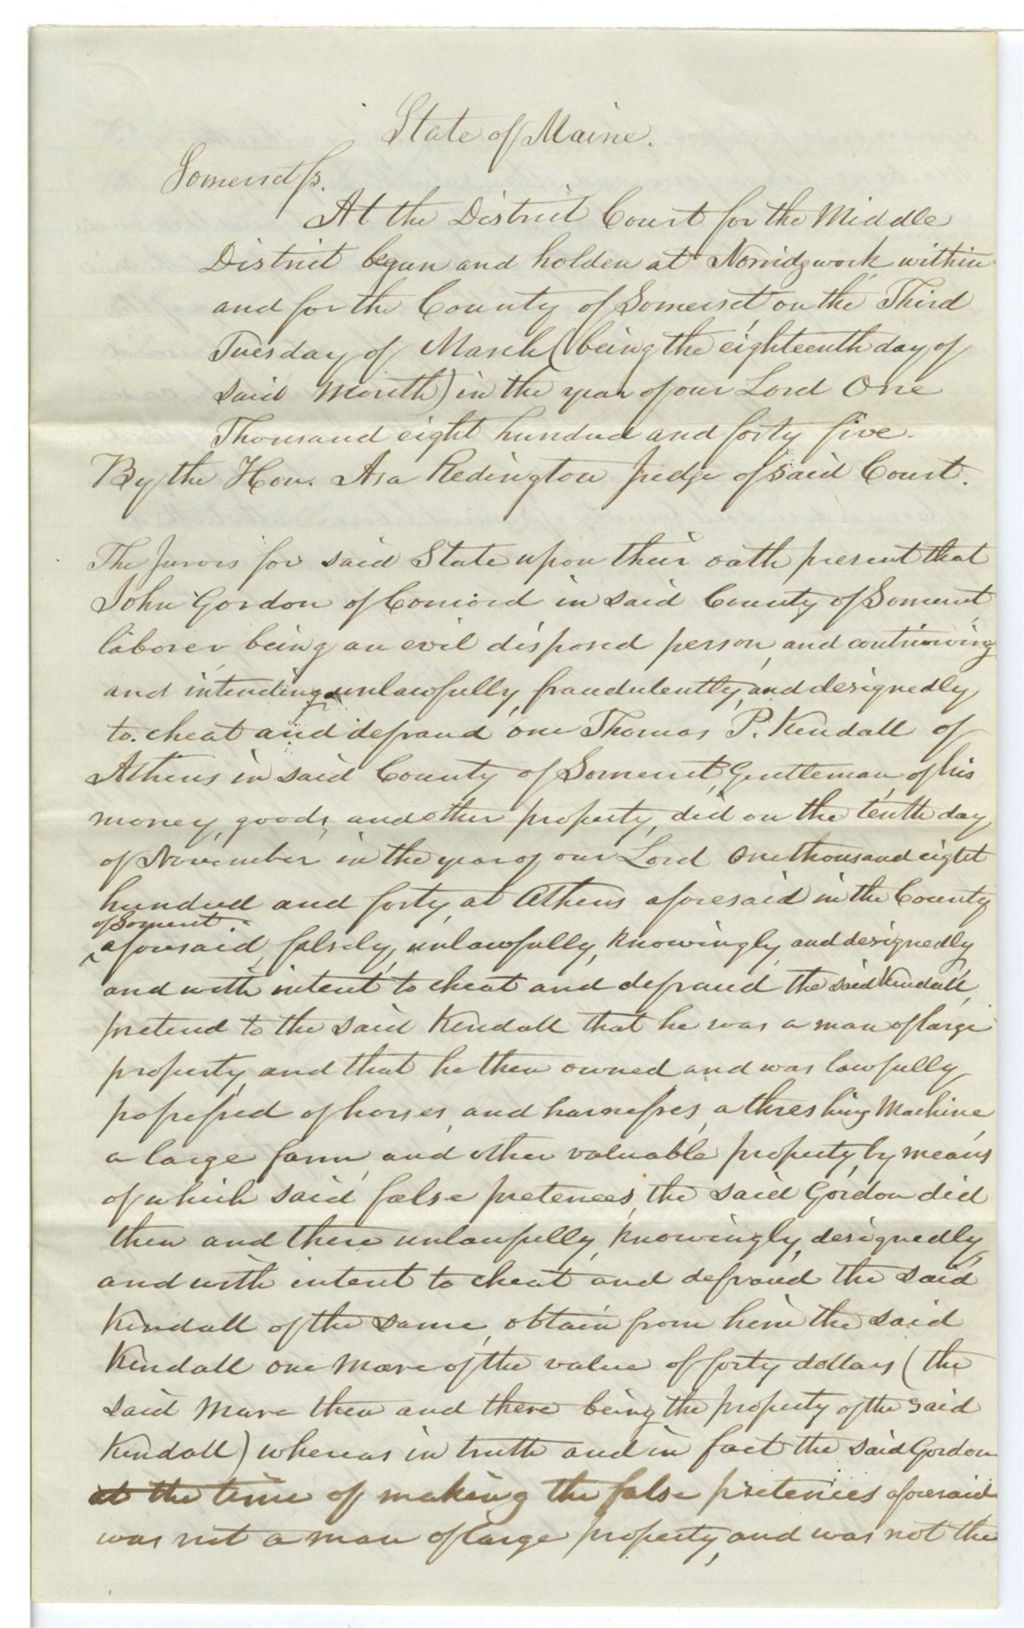 State of Maine.
Somerset ss.
At the District Court for the Middle
District begun and holden at Norridgwock within
and for the County of Somerset on the Third
Tuesday of March (being the eighteenth day of
said Month) in the year of our Lord One
Thousand eight hundred and forty five.
By the Hon. Asa Redington Judge of said Court.
The Jurors for said State upon their oath present that
John Gordon of Concord in said County of Somerset,
laborer, being an evil disposed person, and contriving
and intending unlawfully, fraudulently, and designedly,
to cheat and defraud one Thomas P. Kendall of
Athens in said County of Somerset, Gentleman, of his
money, goods, and other property, did on the tenth day
of November in the year of our Lord one thousand eight
hundred and forty, at Athens aforesaid in the County
of Somerset
aforesaid, falsely, unlawfully, knowingly, and designedly
and with intent to cheat and defraud the said Kendall,
pretend to the said Kendall that he was a man of large
property, and that he then owned and was lawfully
possessed of horses, and harnesses, a threshing Machine,
a large farm, and other valuable property, by means
of which said false pretences, the said Gordon did
then and there unlawfully, knowingly, designedly,
and with intent to cheat and defraud the said
Kendall of the same, obtain from him the said
Kendall one Mare of the value of forty dollars (the
said Mare then and there being the property of the said
Kendall) whereas in truth and in fact the said Gordon
at the time of making the false pretences aforesaid
was not a man of large property, and was not the